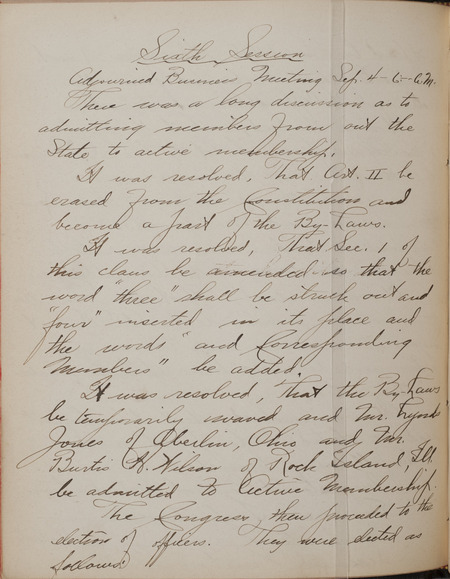 Sixth Session
Adjourned Business Meeting Sep. 4 - 6 - A.M.
There was a long discussion as to
admitting members from out the
State to active membership.
It was resolved, That Art. II be
erased from the Constitution and
become a part of the By-Laws.
It was resolved, That Sec. 1 of
this claus be amended so that the
word "three" shall be struck out and
"four" inserted in its place and
the words "and Corresponding
Members" be added.
It was resolved, that the By-Laws
be temporarily waved and Mr. Lynds
Jones of Oberlin, Ohio and Mr.
Burtis H. Wilson of Rock Island, Ill.
be admitted to Active Membership.
The Congress then proceded to the
election of officers. They were elected as
follows: